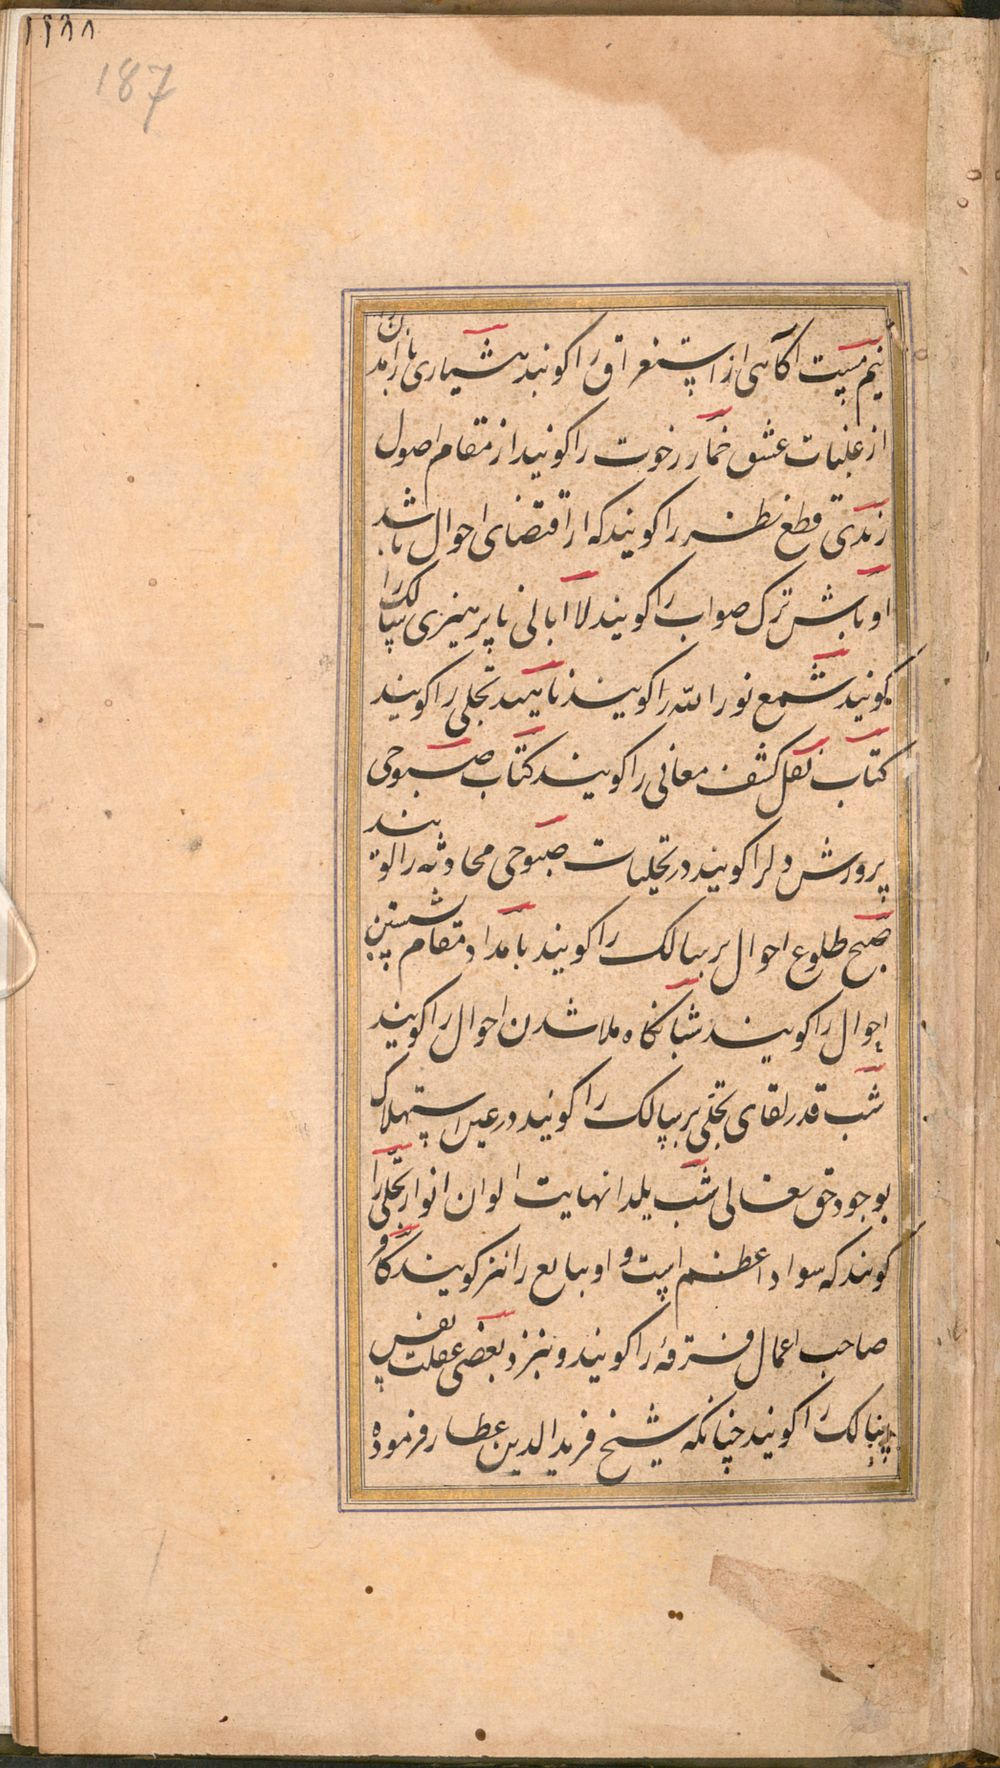 ۱۹۸۸
187
نیم مست آکاهی از استغراق را کویند هشیاری بازآمدن
از غلبات عشق خمار رخوت را کویند از مقام اصول
رندی قطع نظر را کویند که از اقتضای احوال باشد
اوباش ترک صواب را کویند لاابالی ناپرهیزی سالک را
کویند شمع نور الله را کویند تجلی را کویند
کتاب نقل کشف معانی را کویند کتاب صبوحی
پرورش دلرا کویند در تجلیات صبوحی محادثه را کویند
صبح طلوع احوال بر سالک را کویند بامداد مقام شستن
احوال را کویند شبانکاه ملا شدن احوال را کویند
شب قدر لقای تجلی بر سالک را کویند در عین استهلاک
بوجود حق تعالی شب یلدا نهایت الوان انوار تجلی را
کویند که سواد اعظم است و را نیز کویند کاو
صاحب اعمال را کویند و نیز بعضی غفلت نفس
سالک را کویند چنانکه شیخ فریدالدین عطار فرموده